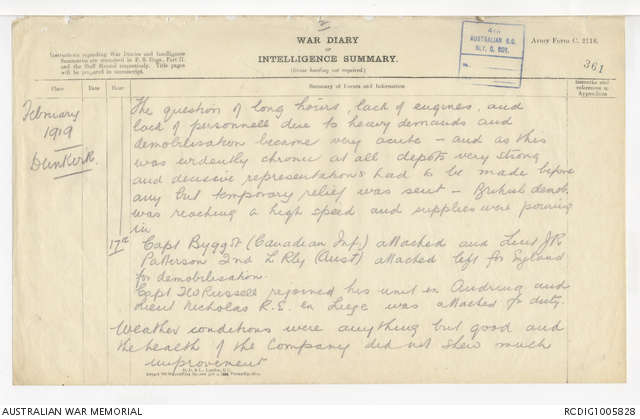 WAR DIARY
or
INTELLIGENCE SUMMARY.
(Erase heading not required.)
Instructions regarding War Diaries and Intelligence
Summaries are contained in F. S. Regs., Part II.
and the Staff Manual respectively. Title pages
will be prepared in manuscript.
4TH
AUSTRALIAN B.G.
RLY. O. COY.
No.
Army Form C. 2118.
361
Place
Date
Hour
Summary of Events and Information
Remarks and
references to
Appendices
February
1919
Dunkerk.
The question of long hours, lack of engines, and
lack of personnell due to heavy demands and
demobilisation became very acute – and as this
was evidently chronic at all depots very strong
and decisive representations had to be made before
any but temporary relief was sent – British demob.
was reaching a high speed and supplies were pouring
in
17th
Capt Byggot (Canadian Inf.) attached and Lieut J.R.
Patterson 2nd L Rly (Aust) attached left for England
for demobilisation.
Capt Russell rejoined his unit in and
Lieut Nicholas R.E. en Liege was attached for duty.
Weather conditions were anything but good and
the health of the Company did not shew much
improvement
AUSTRALIAN WAR MEMORIAL
RCDIG1005828